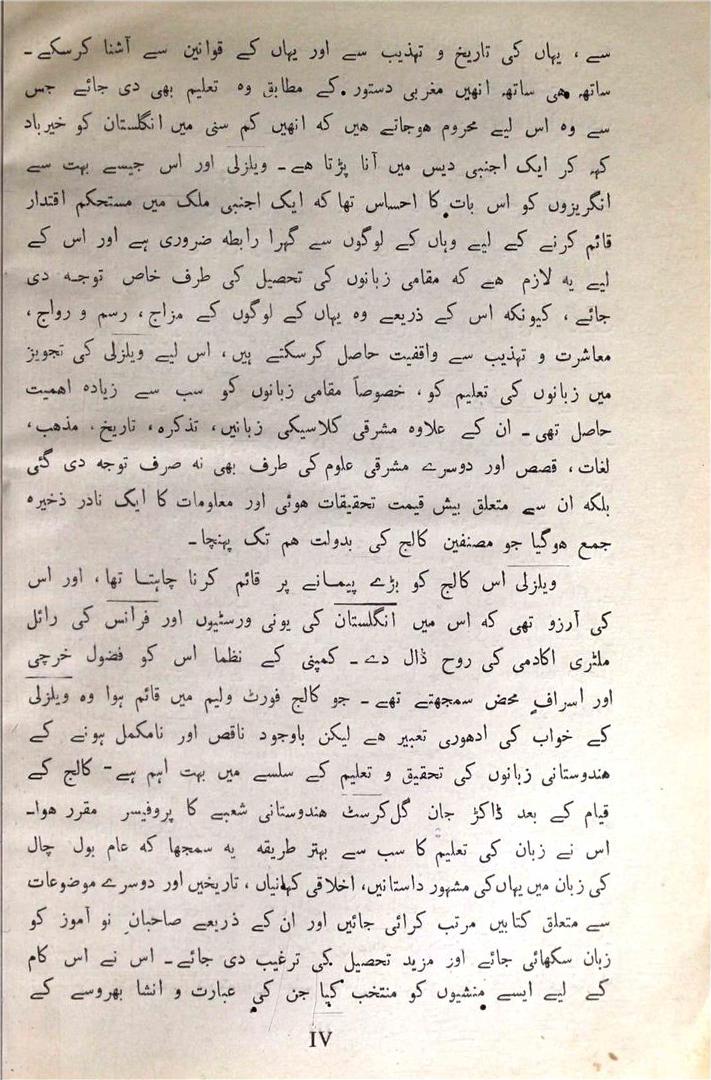 سے ، یہاں کی تاریخ و تہذیب سے اور یہاں کے قوانین سے آشنا کرسکے۔
ساتھ ھی ساتھ انھیں مغربی دستور کے مطابق وہ تعلیم بھی دی جائے جس
سے وہ اس لیے محروم ھوجاتے ھیں کہ انھیں کم سنی میں انگلستان کو خیرباد
کہہ کر ایک اجنبی دیس میں آنا پڑتا ھے۔ ویلزلی اور اس جیسے بہت سے
انگریزوں کو اس بات کا احساس تھا کہ ایک اجنبی ملک میں مستحکم اقتدار
قائم کرنے کے لیے وہاں کے لوگوں سے گہرا رابطہ ضروری ہے اور اس کے
لیے یہ لازم ھے کہ مقامی زبانوں کی تحصیل کی طرف خاص توجہ دی
جائے ، کیونکہ اس کے ذریعے وہ یہاں کے لوگوں کے مزاج ، رسم و رواج ،
معاشرت و تہذیب سے واقفیت حاصل کرسکتے ہیں ، اس لیے ویلزلی کی تجویز
میں زبانوں کی تعلیم کو ، خصوصاً مقامی زبانوں کو سب سے زیادہ اھمیت
حاصل تھی۔ ان کے علاوہ مشرقی کلاسیکی زبانیں ، تذکرہ ، تاریخ ، مذھب ،
لغات ، قصص اور دوسرے مشرقی علوم کی طرف بھی نہ صرف توجہ دی گئی
بلکہ ان سے متعلق بیش قیمت تحقیقات ھوئی اور معلومات کا ایک نادر ذخیرہ
جمع ھوگیا جو مصنفین کالج کی بدولت ھم تک پہنچا۔
ویلزلی اس کالج کو بڑے پیمانے پر قائم کرنا چاہتا تھا ، اور اس
کی آرزو تھی کہ اس میں انگلستان کی یونی ورسٹیوں اور فرانس کی رائل
ملٹری اکادمی کی روح ڈال دے۔ کمپنی کے نظما اس کو فضول خرچی
اور اسراف محض سمجھتے تھے۔ جو کالج فورٹ ولیم میں قائم ہوا وہ ویلزلی
کے خواب کی ادھوری تعبیر ھے لیکن باوجود ناقص اور نامکمل ہونے کے
ھندوستانی زبانوں کی تحقیق و تعلیم کے سلسے میں بہت اہم ہے۔ کالج کے
قیام کے بعد ڈاکٹر جان گل کرسٹ ھندوستانی شعبے کا پروفیسر مقرر ھوا۔
اس نے زبان کی تعلیم کا سب سے بہتر طریقہ یہ سمجھا کہ عام بول چال
کی زبان میں یہاں کی مشہور داستانیں ، اخلاقی کہانیاں ، تاریخیں اور دوسرے موضوعات
سے متعلق کتابیں مرتب کرائی جائیں اور ان کے ذریعے صاحبان نو آموز کو
زبان سکھائی جائے اور مزید تحصیل کی ترغیب دی جائے۔ اس نے اس کام
کے لیے ایسے منشیوں کو منتخب کیا جن کی عبارت و انشا بھروسے کے
IV